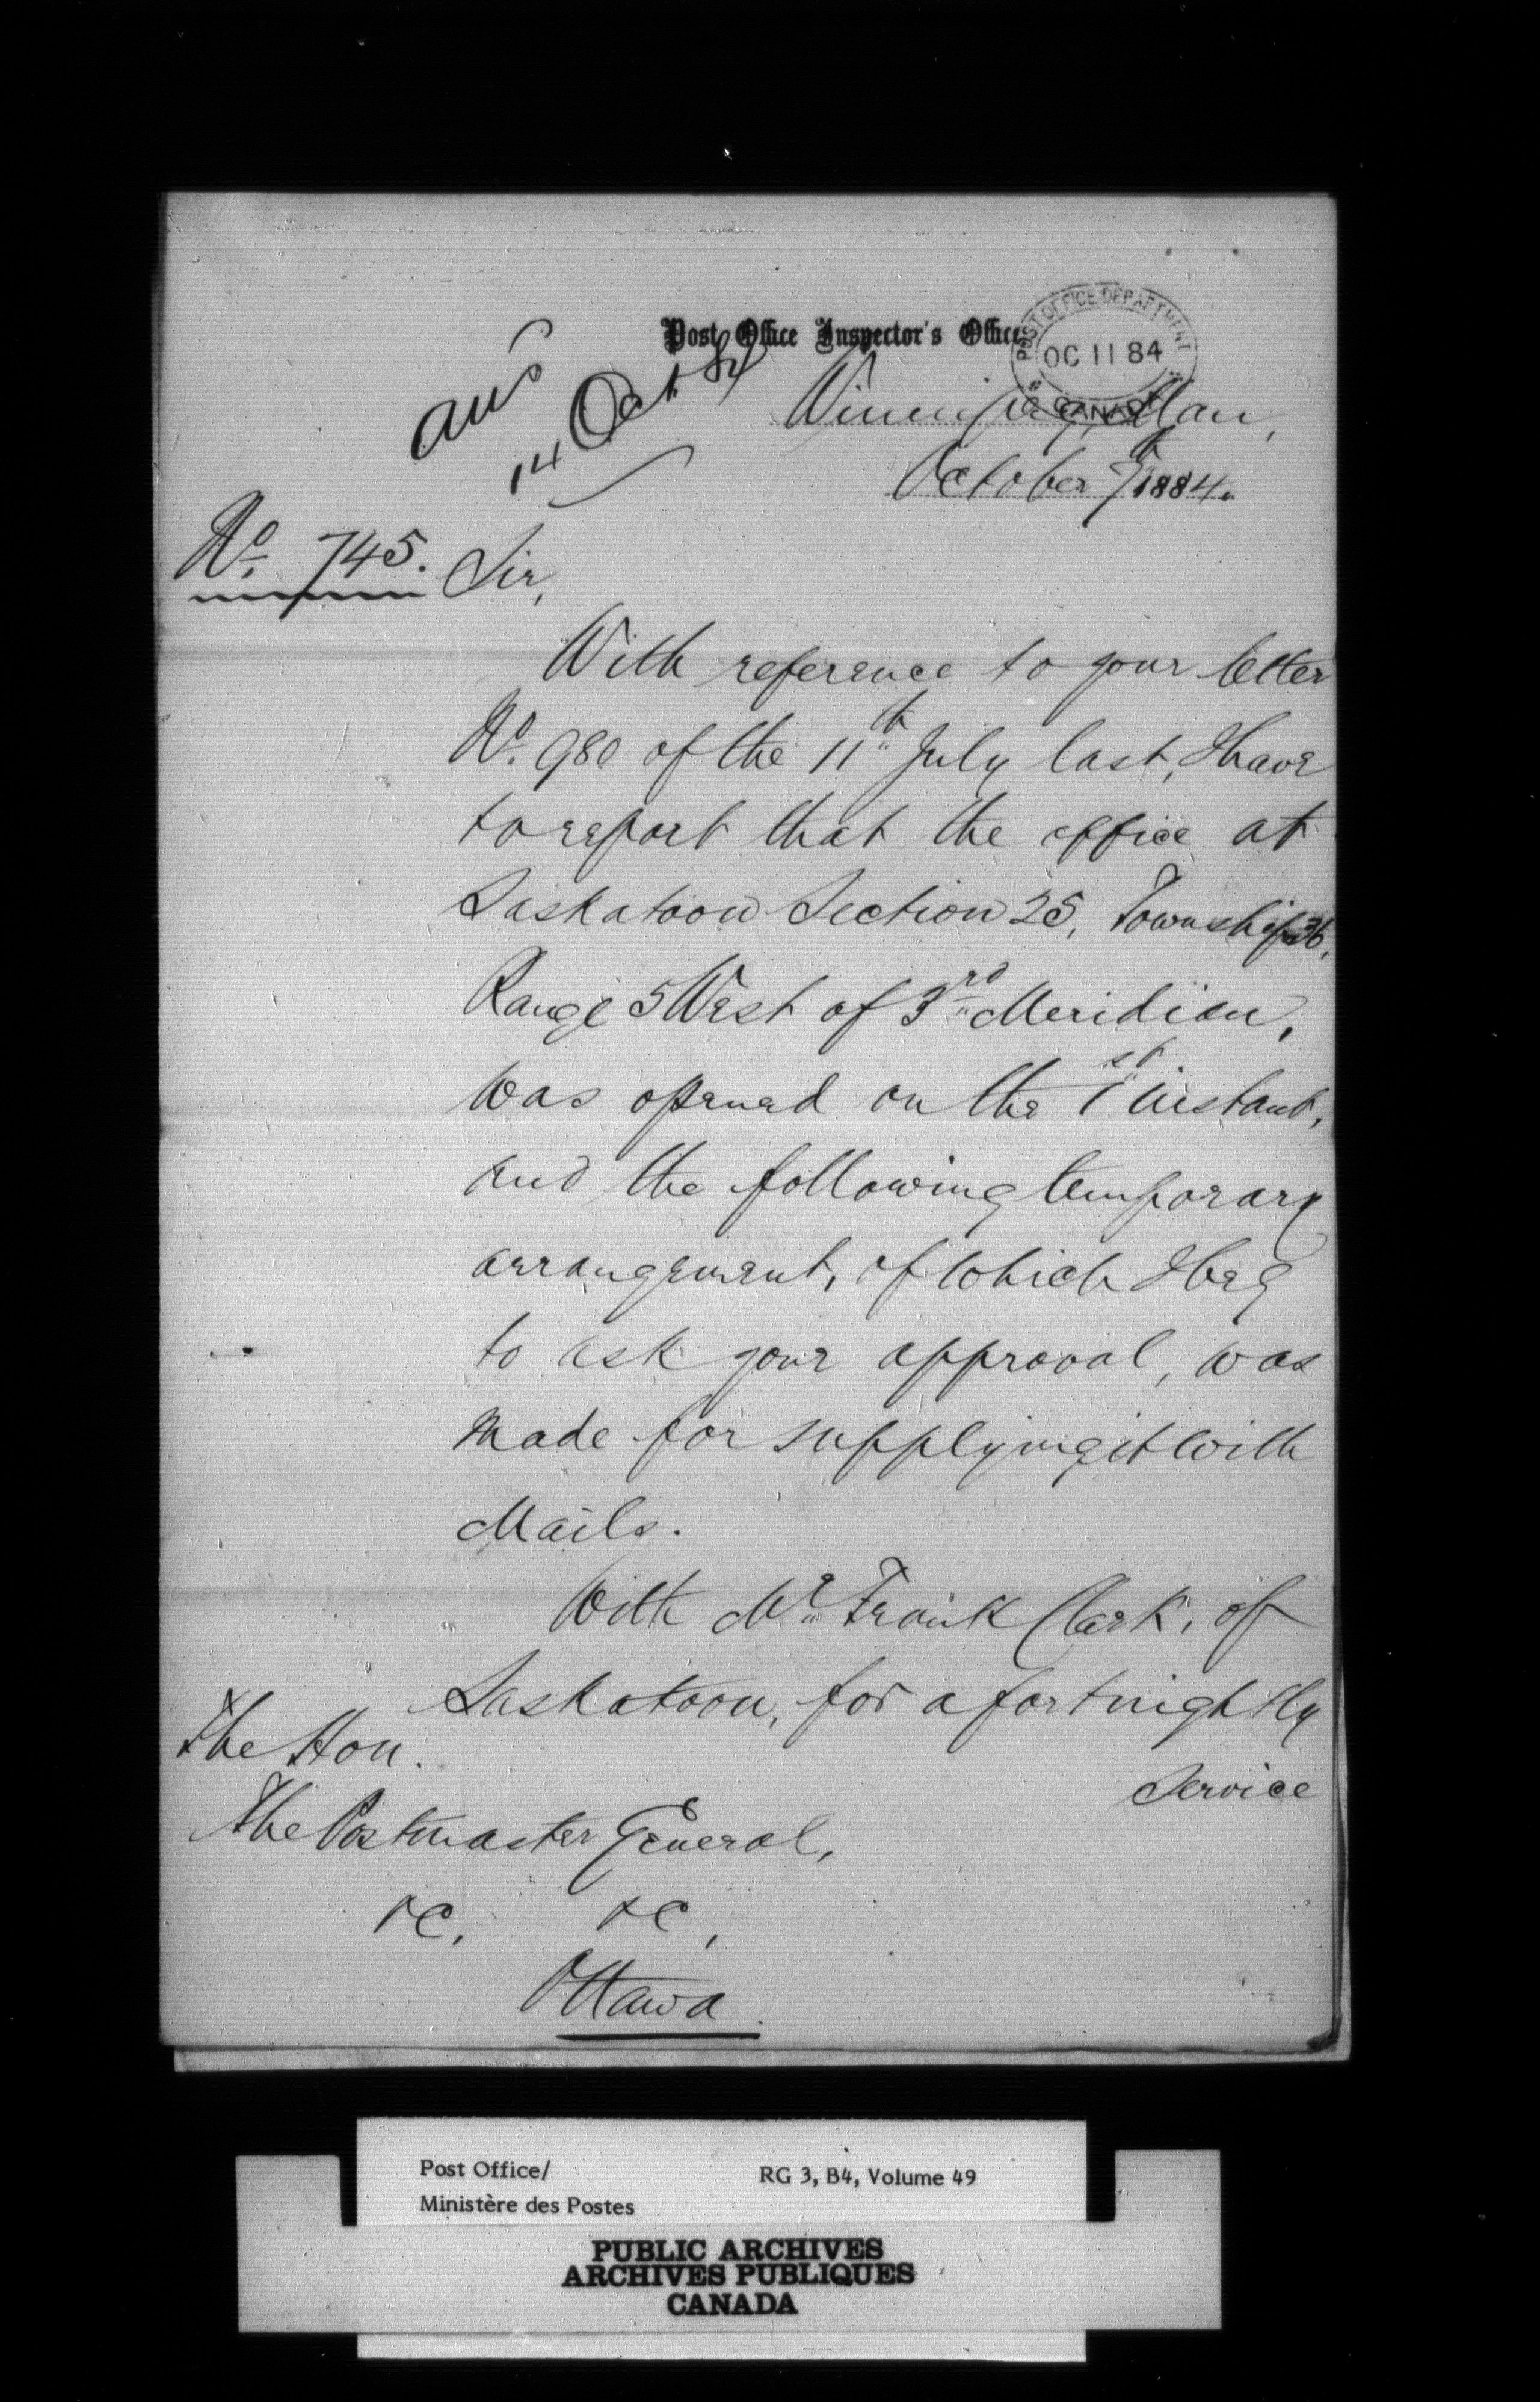 Post Office Inspector's Office
POST OFFICE DEPARTMENT
OC 11 84
CANADA
ans
14 Oct 84
Winnipeg, Man,
October 7th 1884.
No. 745. Sir,
With reference to your letter
No. 980 of the 11th July last, I have
to report that the office at
Saskatoon Section 25, Township 36,
Range 5 West of 3rd Meridian,
was opened on the 1st instant,
and the following temporary
arrangement, of which I beg
to ask your approval, was
made for supplying it with
Mails.
With Mr Frank Clark, of
Saskatoon, for a fortnightly
Service
The Hon.
The Postmaster General,
&c, &c,
Ottawa.
Post Office/
Ministère des Postes
RG 3, B4, Volume 49
PUBLIC ARCHIVES
ARCHIVES PUBLIQUES
CANADA